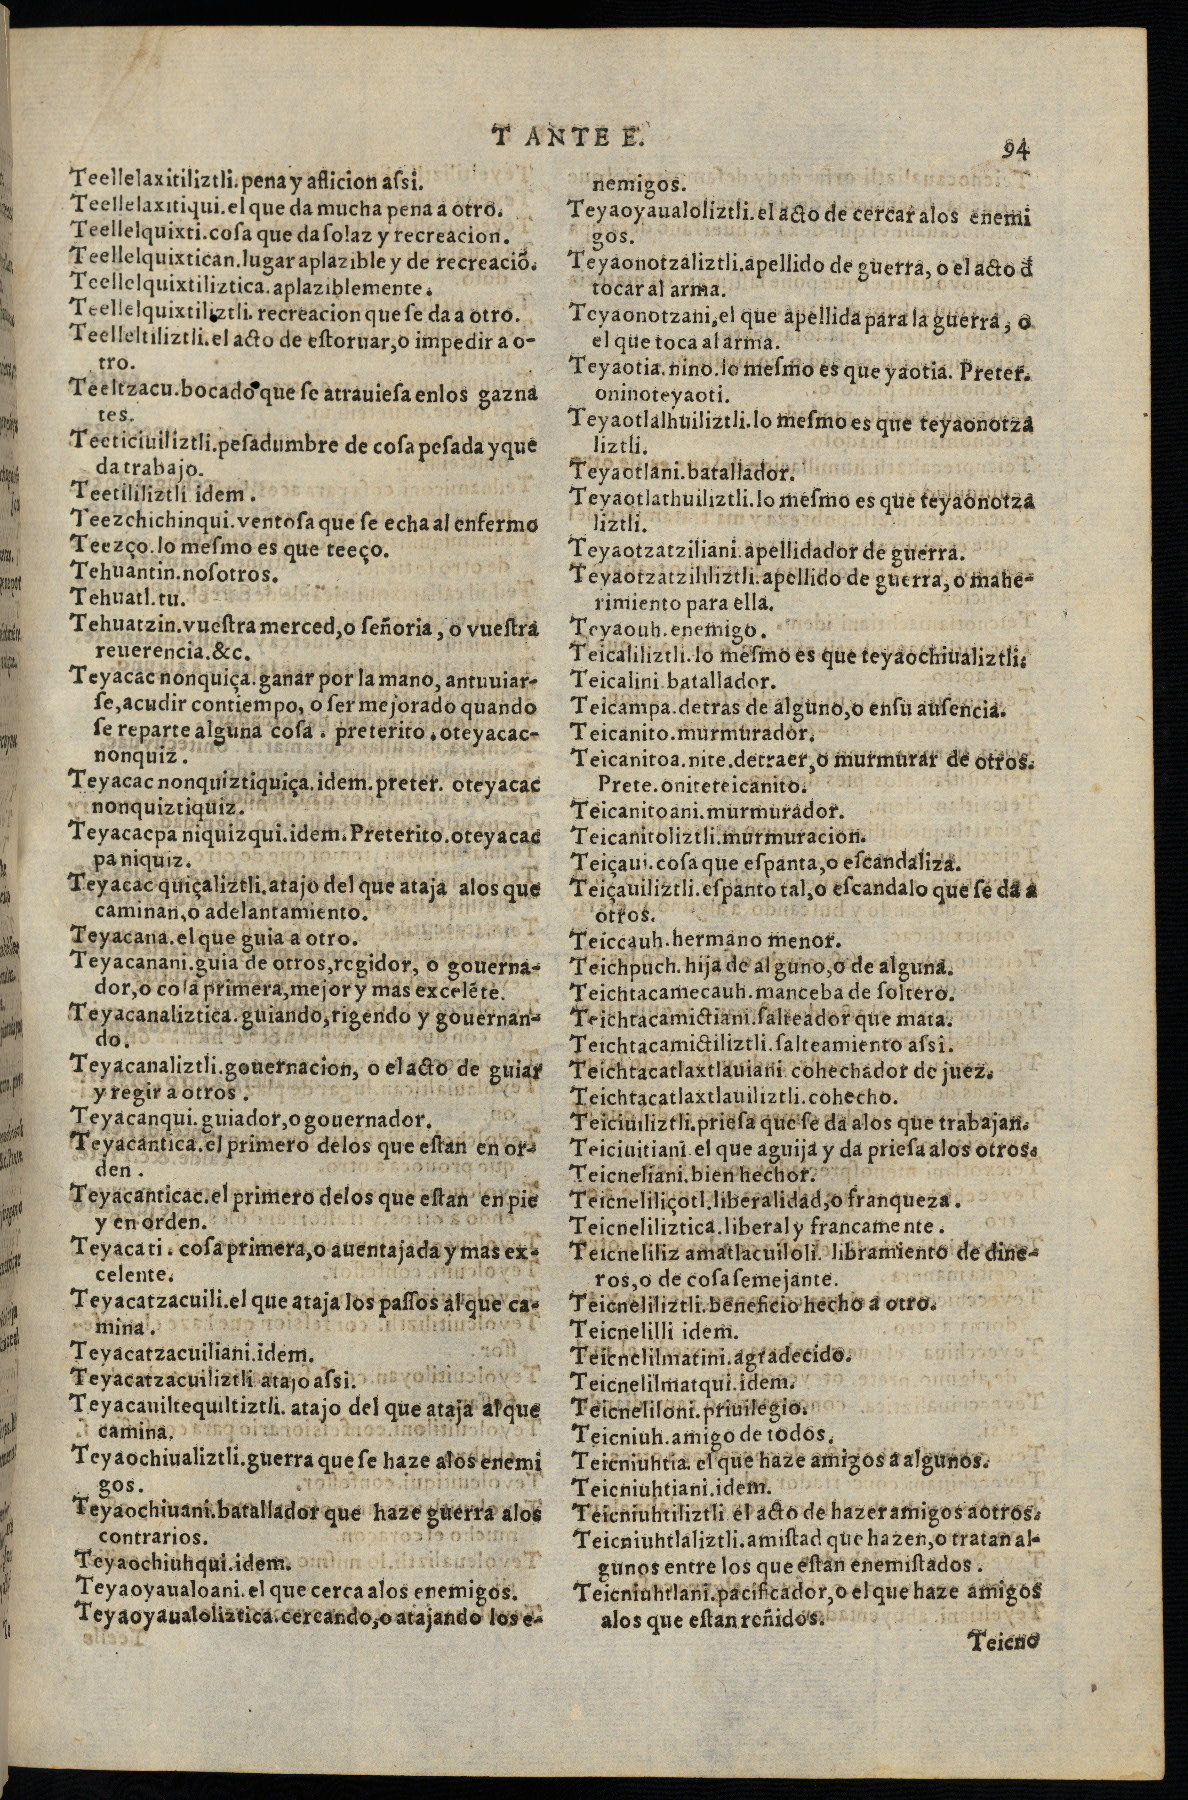 T ANTE E.
94
Teellelaxitiliztli.pena y aflicion aſsi.
Teellelaxitiqui.el que da mucha pena a otro.
Teellelquixti.coſa que da ſolaz y recreacion.
Teellelquixtican.lugar aplazible y de recreaciõ.
Teellelquixtiliztica.aplaziblemente.
Teellelquixtiliztli.recreacion que ſe da a otro.
Teelleltiliztli.el acto de eſtoruar,o impedir a o-
tro.
Teeltzacu.bocado que ſe atrauieſa enlos gazna
tes.
Teeticiuiliztli.peſadumbre de coſa peſada y que
da trabajo.
Teetililiztli idem.
Teezchichinqui.ventoſa que ſe echa al enfermo
Teezço.lo meſmo es que teeço.
Tehuantin.noſotros.
Tehuatl.tu.
Tehuatzin.vueſtra merced,o ſeñoria, o vueſtra
reuerencia.&c.
Teyacac nonquiça.ganar por la mano, antuuiar-
ſe,acudir contiempo, o ſer mejorado quando
ſe reparte alguna coſa. preterito.oteyacac-
nonquiz.
Teyacac nonquiztiquiça.idem.preter. oteyacac
nonquiztiquiz.
Teyacacpa niquizqui.idem.Preterito.oteyacac
pa niquiz.
Teyacac quiçaliztli.atajo del que ataja alos que
caminan,o adelantamiento.
Teyacana.el que guia a otro.
Teyacanani.guia de otros,regidor, o gouerna-
dor,o coſa primera,mejor y mas excelẽte.
Teyacanaliztica.guiando,rigendo y gouernan-
do.
Teyacanaliztli.gouernacion, o el acto de guiar
y regir a otros.
Teyacanqui.guiador,o gouernador.
Teyacantica.el primero delos que eſtan en or-
den.
Teyacanticac.el primero delos que eſtan en pie
y en orden.
Teyacati. coſa primera,o auentajada y mas ex-
celente.
Teyacatzacuili.el que ataja los paſſos al que ca-
mina.
Teyacatzacuiliani.idem.
Teyacatzacuiliztli atajo aſsi.
Teyacauiltequiltiztli. atajo del que ataja al que
camina.
Teyaochiualiztli.guerra que ſe haze alos enemi
gos.
Teyaochiuani.batallador que haze guerra alos
contrarios.
Teyaochiuhqui.idem.
Teyaoyaualoani.el que cerca alos enemigos.
Teyaoyaualoliztica.cercando,o atajando los e-
nemigos.
Teyaoyaualoliztli.el acto de cercar alos enemi
gos.
Teyaonotzaliztli.apellido de guerra, o el acto đ
tocar al arma.
Teyaonotzani,el que apellida para la guerra, o
el que toca al arma.
Teyaotia.nino.lo meſmo es que yaotia. Preter.
oninoteyaoti.
Teyaotlalhuiliztli.lo meſmo es que teyaonotza
liztli.
Teyaotlani.batallador.
Teyaotlathuiliztli.lo meſmo es que teyaonotza
liztli.
Teyaotzatziliani.apellidador de guerra.
Teyaotzatzililiztli.apellido de guerra, o mahe-
rimiento para ella.
Teyaouh.enemigo.
Teicaliliztli.lo meſmo es que teyaochiualiztli.
Teicalini batallador.
Teicampa.detras de alguno,o enſu auſencia.
Teicanito.murmurador.
Teicanitoa.nite.detraer,o murmurar de otros.
Prete.oniteteicanito.
Teicanitoani.murmurador.
Teicanitoliztli.murmuracion.
Teiçaui.coſa que eſpanta,o eſcandaliza.
Teiçauiliztli.eſpanto tal,o eſcandalo que ſe da a
otros.
Teiccauh.hermano menor.
Teichpuch.hija de alguno,o de alguna.
Teichtacamecauh.manceba de ſoltero.
Teichtacamictiani.ſalteador que mata.
Teichtacamictiliztli.ſalteamiento aſsi.
Teichtacatlaxtlauiani cohechador de juez.
Teichtacatlaxtlauiliztli.cohecho.
Teiciuiliztli.prieſa que ſe da alos que trabajan.
Teiciuitiani el que aguija y da prieſa alos otros.
Teicneliani.bien hechor.
Teicneliliçotl.liberalidad,o franqueza.
Teicneliliztica.liberal y francamente.
Teicneliliz amatlacuiloli. libramiento de dine-
ros,o de coſa ſemejante.
Teicneliliztli.beneficio hecho a otro.
Teicnelilli idem.
Teicnelilmatini.agradecido.
Teicnelilmatqui.idem.
Teicneliloni.priuilegio.
Teicniuh.amigo de todos.
Teicniuhtia. el que haze amigos a algunos.
Teicniuhtiani.idem.
Teicniuhtiliztli el acto de hazer amigos aotros.
Teicniuhtlaliztli.amiſtad que hazen,o tratan al-
gunos entre los que eſtan enemiſtados.
Teicniuhtlani.pacificador,o el que haze amigos
alos que eſtan reñidos.
Teicno